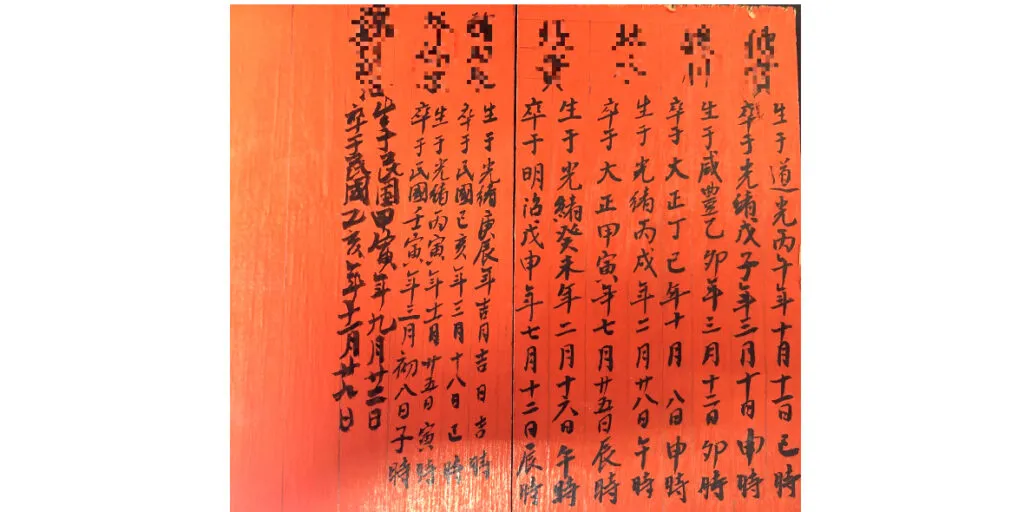 生于道光丙午年十月十一日巳時
卒于光緒戊子年三月十日申時
生于咸豐乙卯年三月十二日卯時
卒于大正丁巳年十月八日申時
生于光緒丙戌年二月廿八日午時
卒于大正甲寅年七月廿五日辰時
生于光緒癸未年二月十六日午時
卒于明治戊申年七月十二日辰時
生于光緒庚辰年吉月吉日吉時
卒于民國己亥年三月十八日巳時
生于光緒丙寅年十一月廿五日寅時
卒于民國壬寅年三月初八日子時
生于民國甲寅年九月廿二日
卒于民國乙亥年十一月廿九日